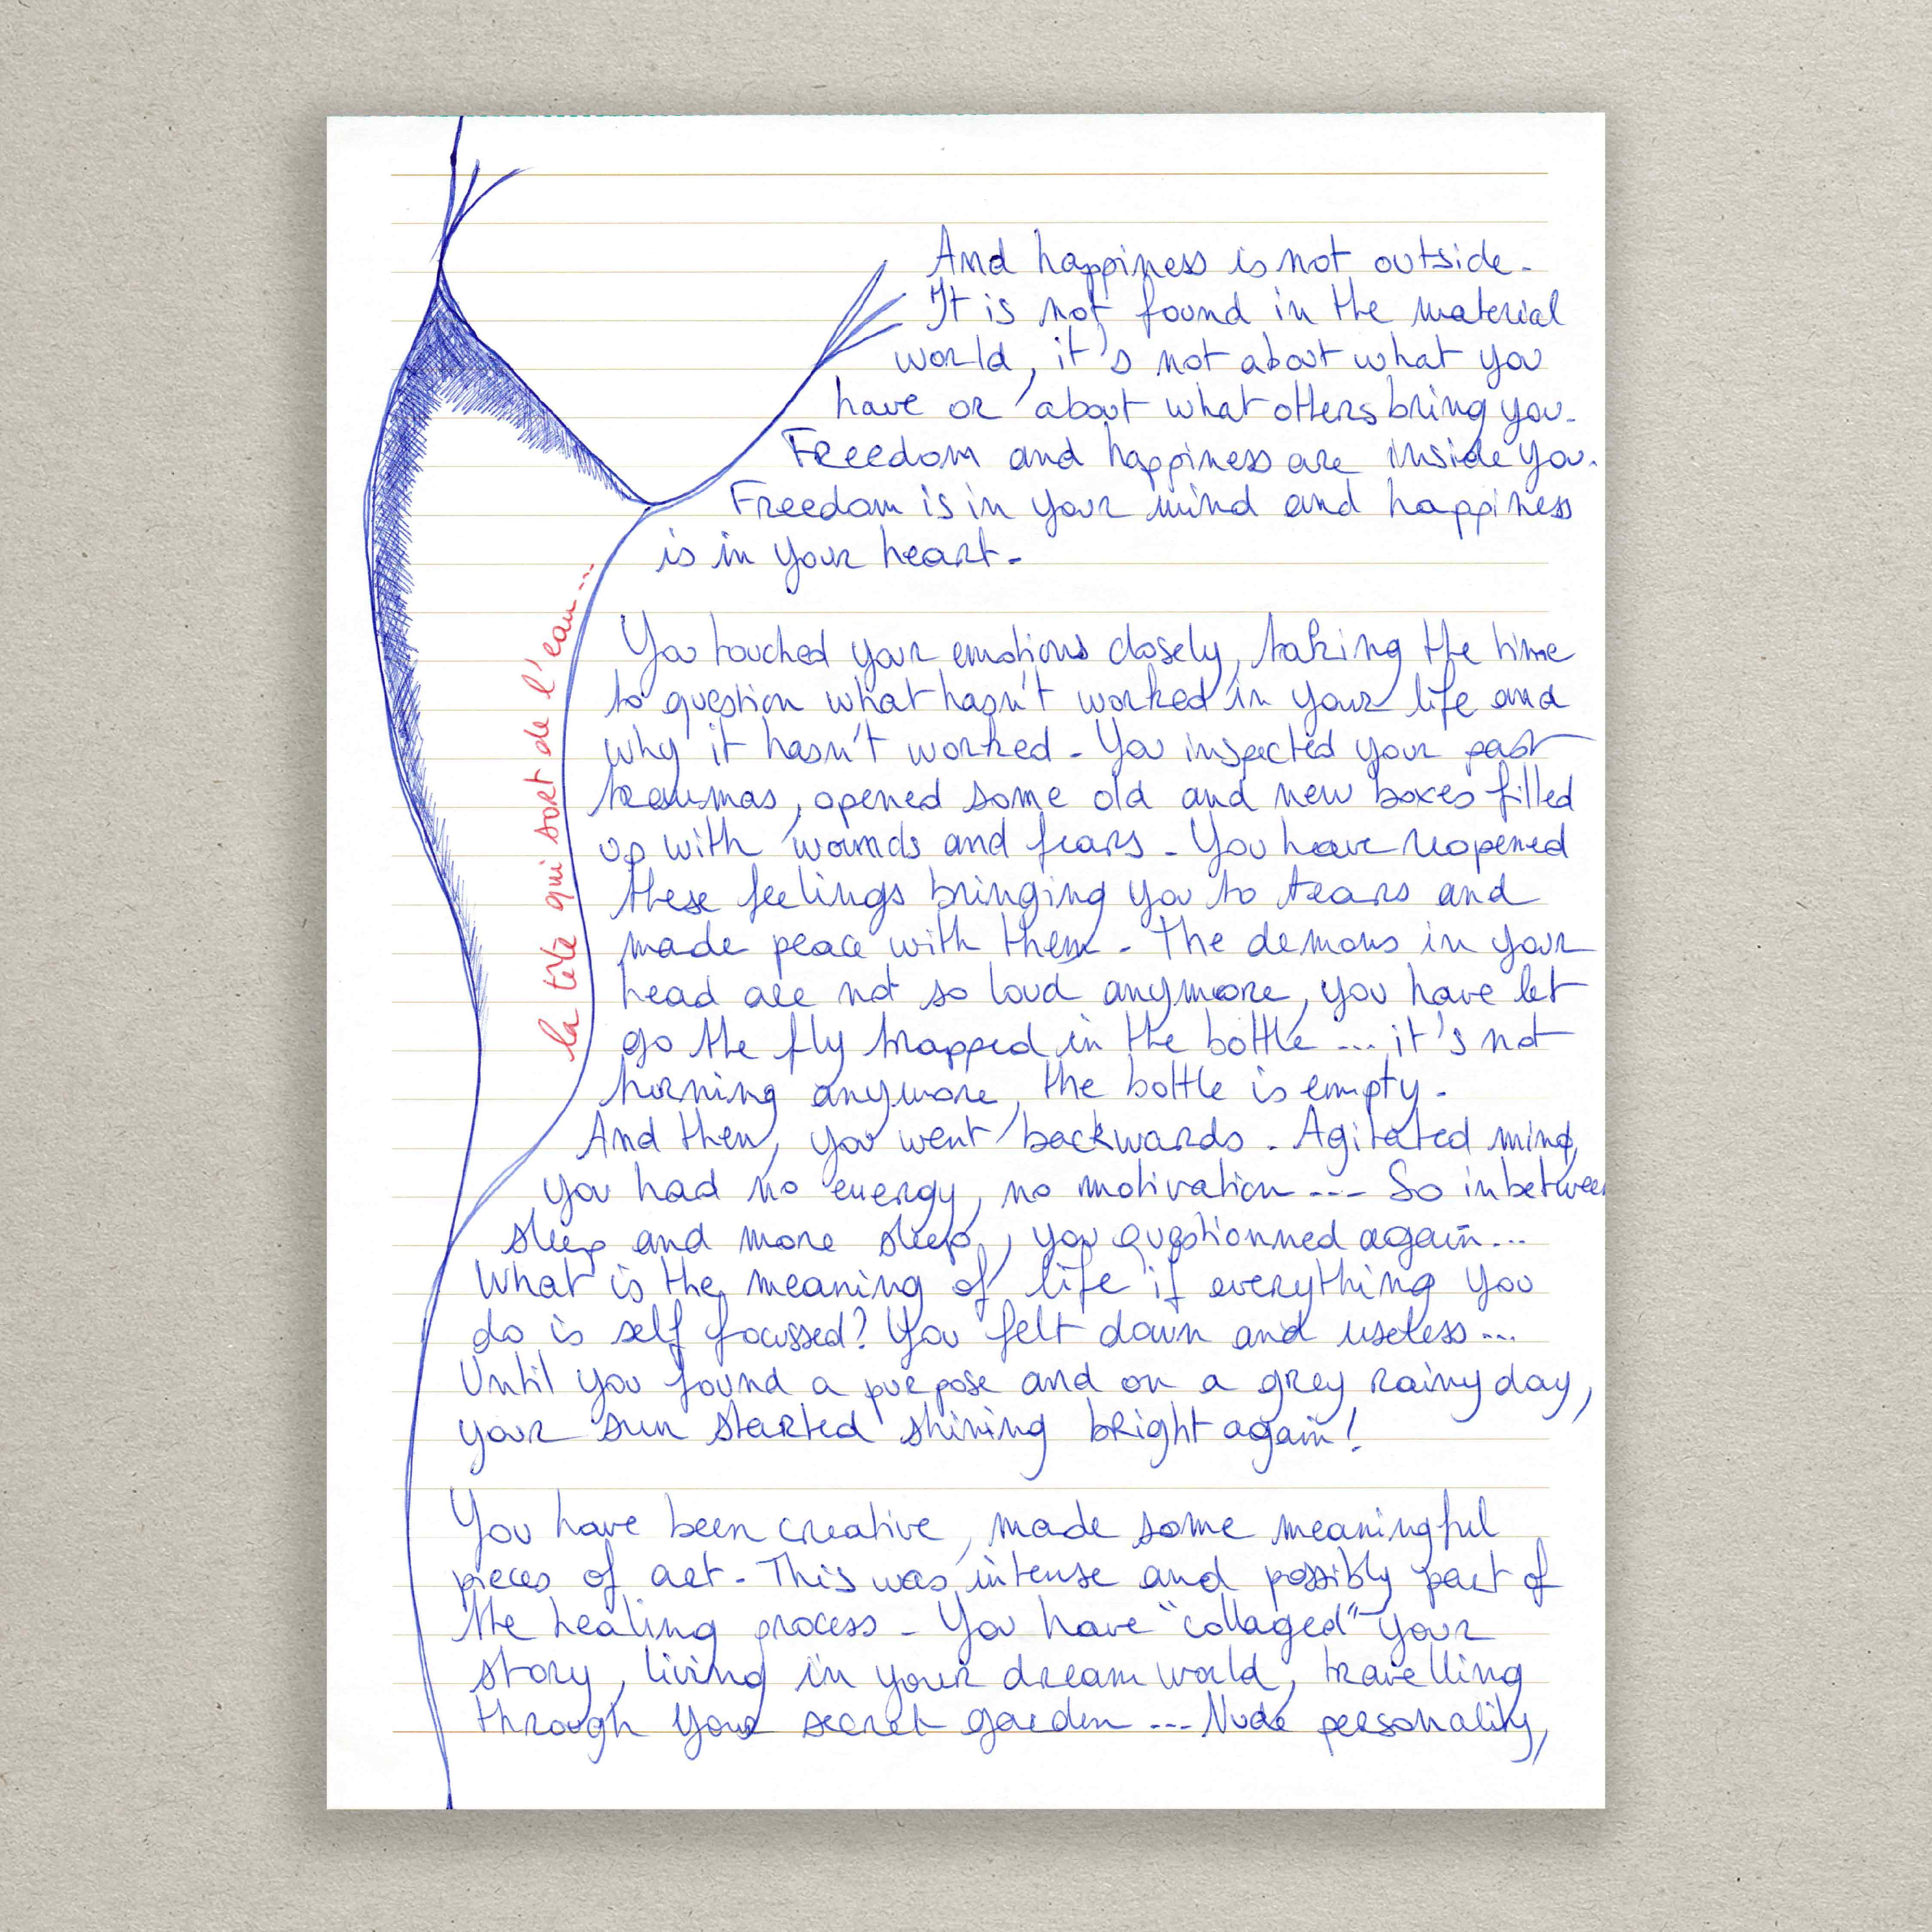 And happiness is not outside.
It is not found in the material
world, it's not about what you
have or about what others bring you.
Freedom and happiness are inside you.
Freedom is in your mind and happiness
is in your heart.
la tête qui sort de l'eau...
You touched your emotions closely, taking the time
to question what hasn't worked in your life and
why it hasn't worked. You inspected your past
traumas, opened some old and new boxes filled
up with wounds and fears. You have reopened
these feelings bringing you to tears and
made peace with them. The demons in your
head are not so loud anymore, you have let
go the fly trapped in the bottle ... it's not
turning anymore, the bottle is empty.
And then, you went backwards. Agitated mind,
you had no energy, no motivation ... So inbetween
sleep and more sleep, you questionned again...
What is the meaning of life if everything you
do is self focussed? You felt down and useless...
Until you found a purpose and on a grey rainy day,
your sun started shining bright again!
You have been creative, made some meaningful
pieces of art. This was intense and possibly part of
the healing process. You have "collaged" your
story, living in your dream world, travelling
through your secret garden ... Nude personality,